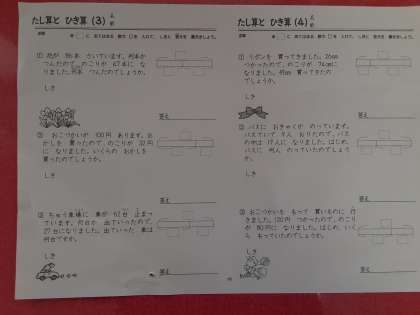 たし算と ひき算 (3)
① 花が 96本 さいています。何本か
つんだので、のこりが 67本に な
りました。何本 つんだのでしょうか。
しき
答え
② おこづかいが 100円 あります。お
かしを 買ったので、のこりが 32円
に なりました。いくらの おかしを
買ったのでしょうか。
しき
答え
③ ちゅう車場に 車が 62台 止まっ
ています。何台か 出ていったので、
27台になりました。出ていった 車は
何台ですか。
しき
答え
たし算と ひき算 (4)
① リボンを 買ってきました。26cm
つかったので、のこりが 74cmに
なりました。何cm 買ってきたの
でしょうか。
しき
答え
② バスに おきゃくが のっています。
バスていで、9人 おりたので、バス
の中は 17人に なりました。はじめ、
バスに 何人 のっていたのでしょう
か。
しき
答え
③ おこづかいを もって 買いものに 行
きました。120円 つかったので、のこり
が 80円に なりました。はじめ、いく
ら もっていたのでしょうか。
しき
答え